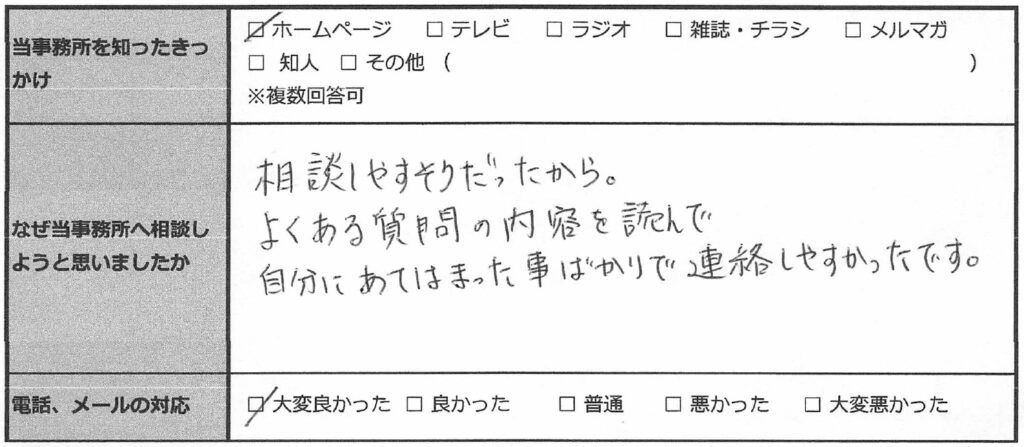 当事務所を知ったきっ
かけ
☑ ホームページ □ テレビ □ ラジオ □ 雑誌・チラシ □ メルマガ
□ 知人 □ その他 ( )
※複数回答可
なぜ当事務所へ相談し
ようと思いましたか
相談しやすそうだったから。
よくある質問の内容を読んで
自分にあてはまった事ばかりで連絡しやすかったです。
電話、メールの対応
☑ 大変良かった □ 良かった □ 普通 □ 悪かった □ 大変悪かった